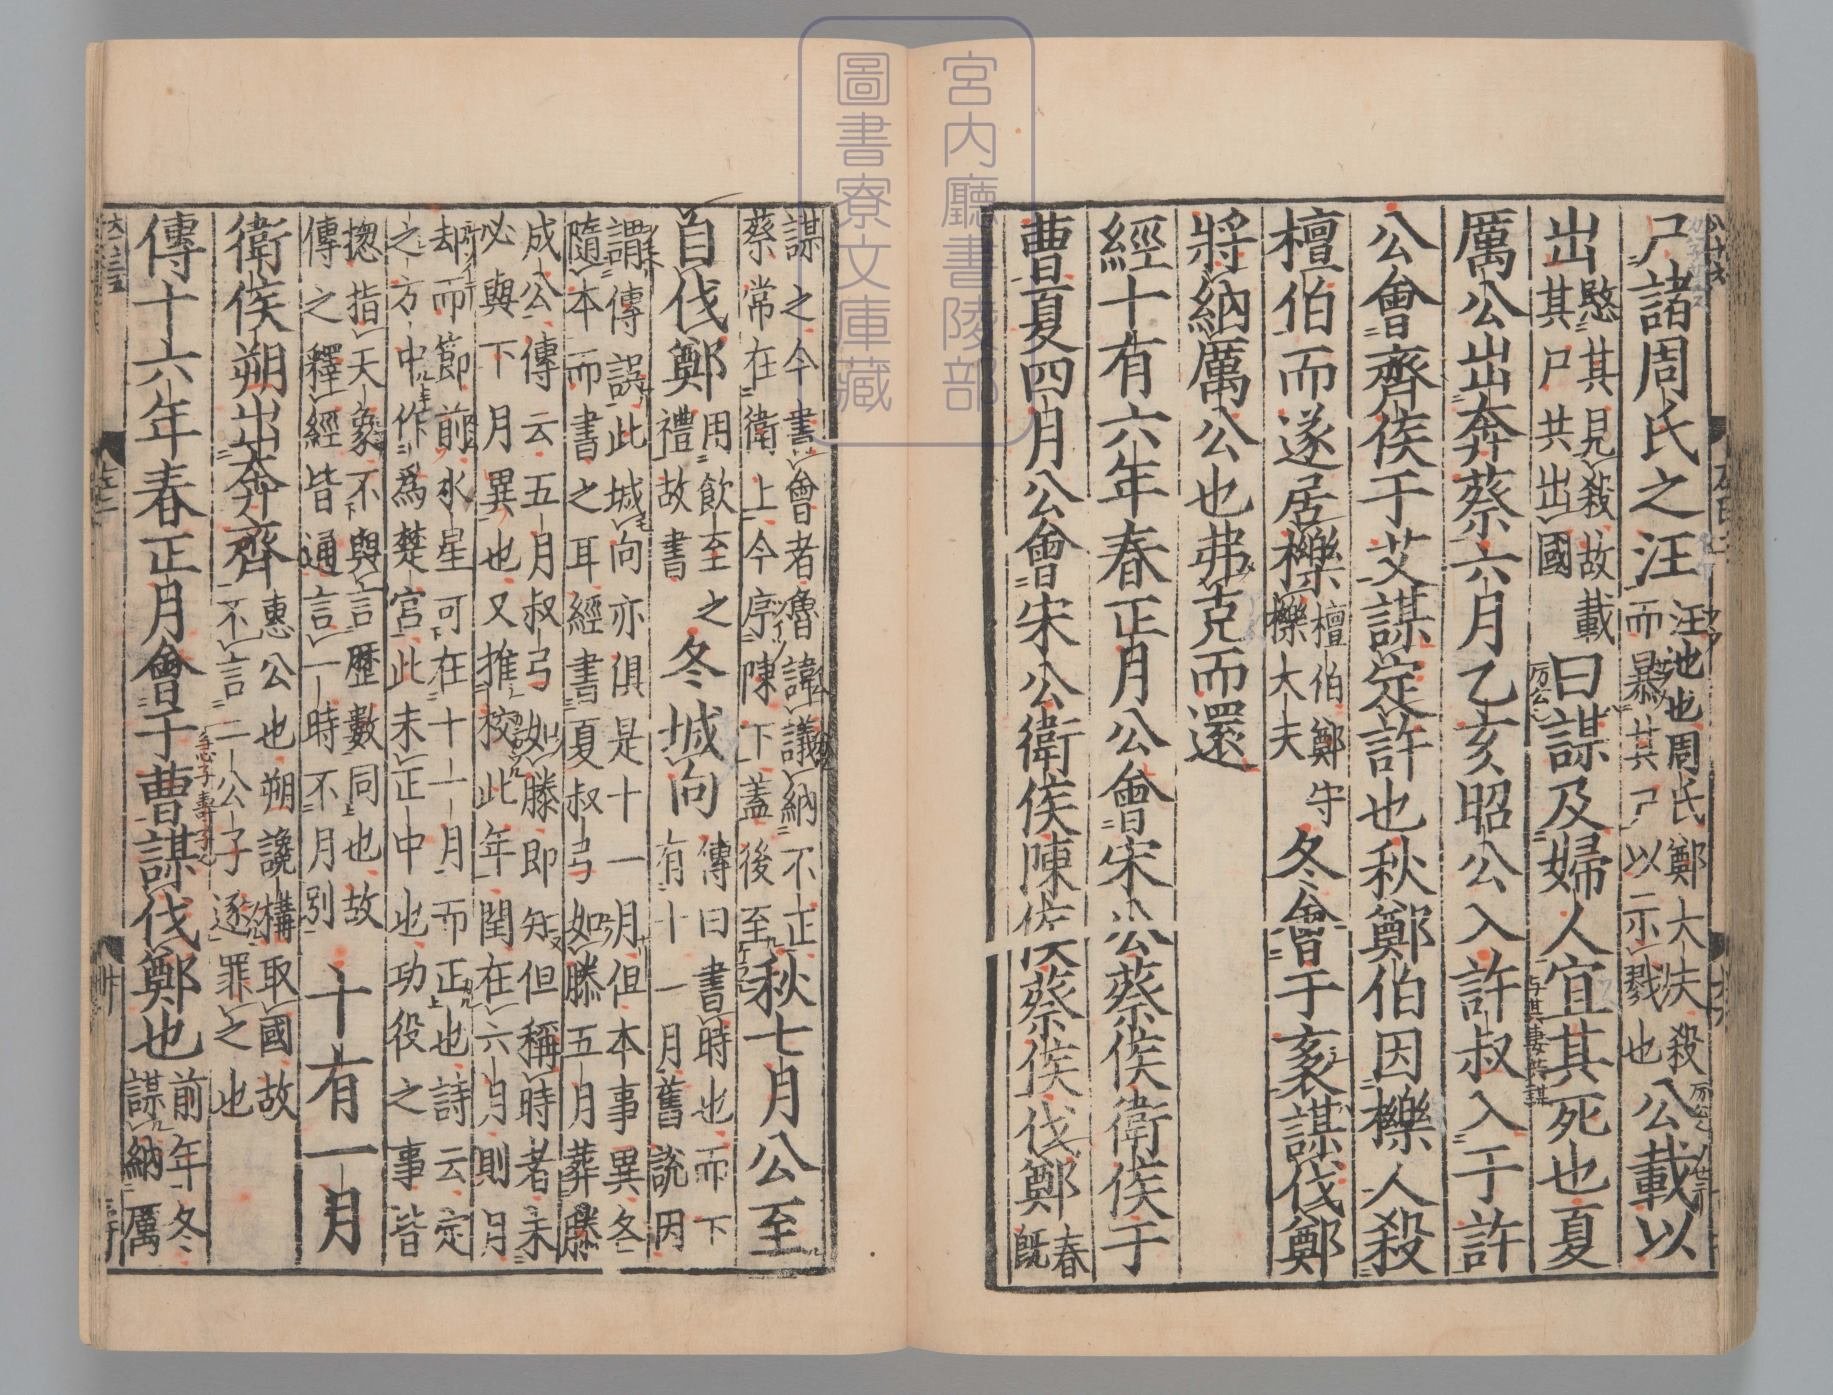 尸諸周氏之汪汪池也周氏鄭大夫殺而暴其尸以示戮也公載以
出愍其見殺故載其尸共出國曰謀及婦人宜其死也夏
厲公出奔蔡六月乙亥昭公入許叔入于許
公會齊侯于艾謀定許也秋鄭伯因櫟人殺
檀伯而遂居櫟檀伯鄭守櫟大夫冬會于袲謀伐鄭
將納厲公也弗克而還
經十有六年春正月公會宋公蔡侯衛侯于
曹夏四月公會宋公衛侯陳侯蔡侯伐鄭春既
謀之今書會者魯諱議納不正蔡常在衛上今序陳下蓋後至秋七月公至
自伐鄭用飲至之禮故書冬城向傳曰書時也而下有十一月舊說因
謂傳誤此城向亦俱是十一月但本事異各隨本而書之耳經書夏叔弓如滕五月葬滕
成公傳云五月叔弓如滕即知但稱時者未必與下月異也又推校此年閏在六月則月
却而節前水星可在十一月而正也詩云定之方中作爲楚宮此未正中也功役之事皆
揔指天象不與言歷數同也故傳之釋經皆通言一時不月別十有一月
衛侯朔出奔齊惠公也朔讒構取國故不言二公子逐罪之也
傳十六年春正月會于曹謀伐鄭也前年冬謀納厲
宮内廳書陵部
圖書寮文庫藏